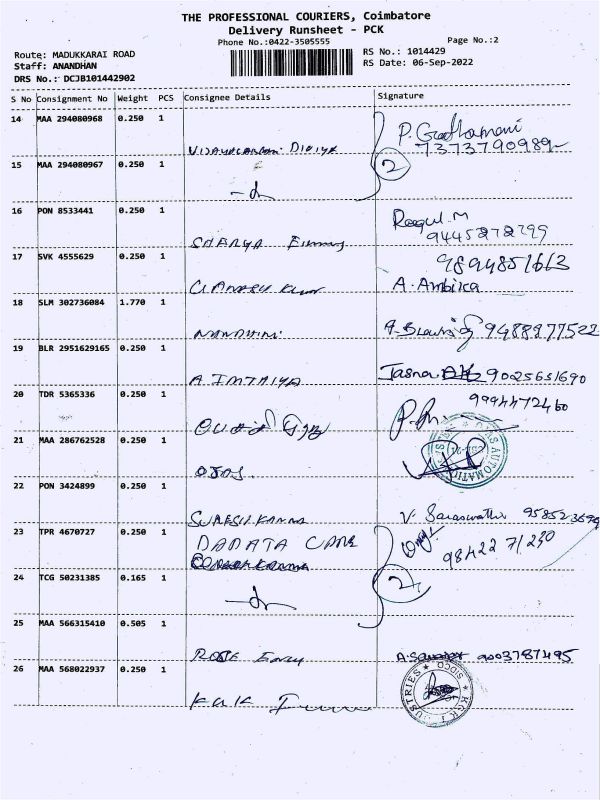 THE PROFESSIONAL COURIERS, Coimbatore
Delivery Runsheet - PCK
Phone No.:0422-3505555
Page No.:2
Route: MADUKKARAI ROAD
RS No.: 1014429
Staff: ANANDHAN
RS Date: 06-Sep-2022
DRS No.: DCJB101442902
S No Consignment No Weight PCS Consignee Details Signature
14 MAA 294080968 0.250 1 P.
7373790989
15 MAA 294080967 0.250 1 2
16 PON 8533441 0.250 1 Ragul.M
9445272799
17 SVK 4555629 0.250 1 9894851663
A. Ambika
18 SLM 302736084 1.770 1
NANDHINI 9488977522
19 BLR 2951629165 0.250 1
A IMTAIYA Jasna 9025651690
20 TDR 5365336 0.250 1 9994472460
21 MAA 286762528 0.250 1 AUTOMATION
22 PON 3424899 0.250 1
SURESH KANNA V. Saraswathi
23 TPR 4670727 0.250 1 DADATA CARE
98422 71230
24 TCG 50231385 0.165 1 2
25 MAA 566315410 0.505 1
ROSE 9003787495
26 MAA 568022937 0.250 1 SIDCO